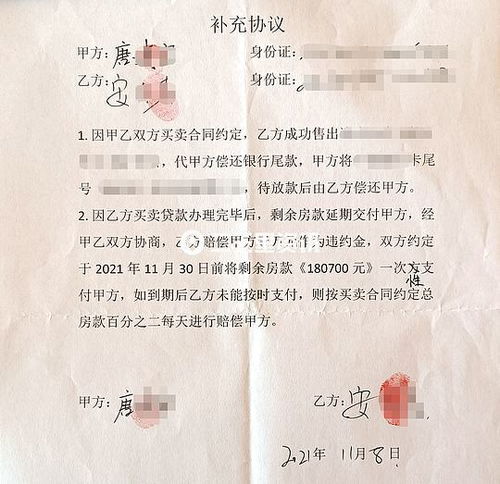 补充协议
甲方：唐 身份证：
乙方：安 身份证：
1. 因甲乙双方买卖合同约定，乙方成功售出
，代甲方偿还银行尾款，甲方将 卡尾
号 ，待放款后由乙方偿还甲方。
2. 因乙方买卖贷款办理完毕后，剩余房款延期交付甲方，经
甲乙双方协商，乙方赔偿甲方 违约金，双方约定
于 2021 年 11 月 30 日前将剩余房款《180700 元》一次性支
付甲方，如到期后乙方未能按时支付，则按买卖合同约定总
房款百分之二每天进行赔偿甲方。
甲方：唐 乙方：安
2021年 11月8日